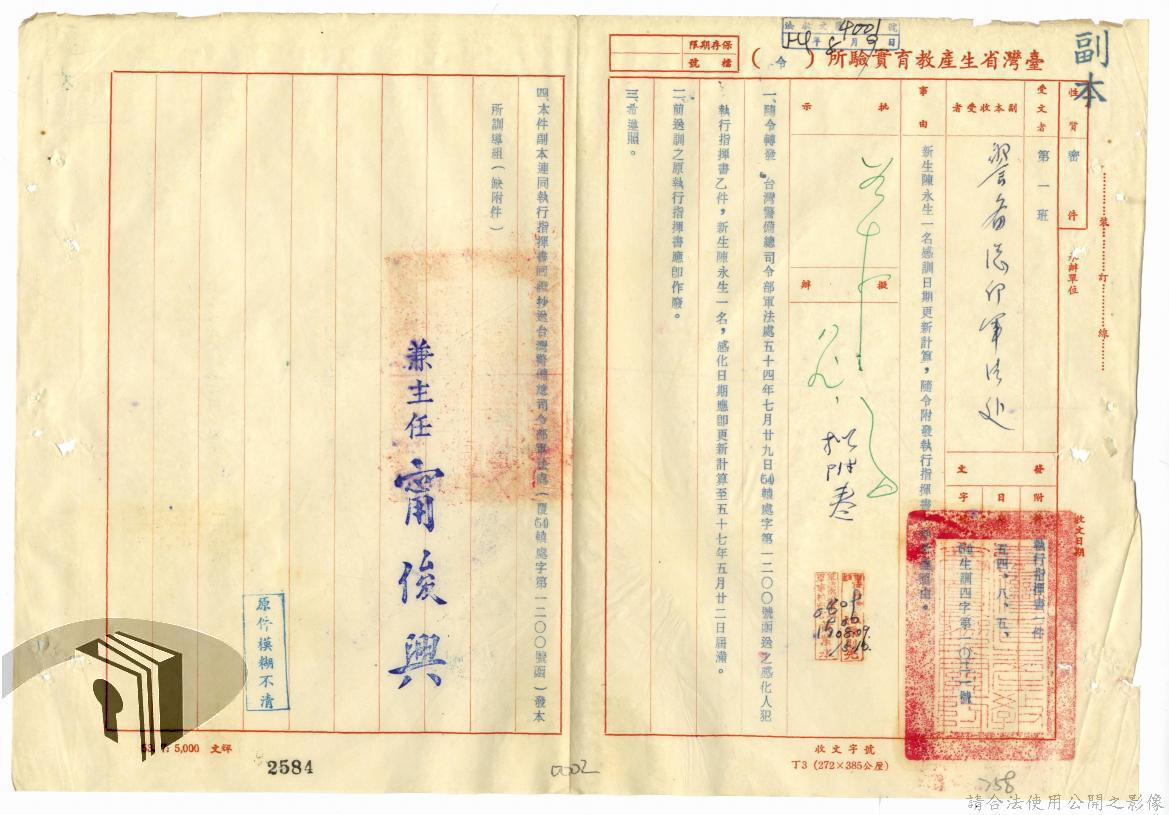 副本
臺灣省生產教育實驗所（令）
保存期限
檔號
法收文第4001號
54年8月9日
性質
密件
承辦單位
裝訂線
受文者
第一班
副本收受者
警備總部軍法處
發文
附
執行指揮書一件
日
五四、八、五、
字
生訓四字第
收文日期
事由
新生陳永生一名感訓日期更新計算，隨令附發執行指揮書
批示
擬辦
擬附卷
一、隨令轉發 台灣警備總司令部軍法處五十四年七月廿九日(54)幀處字第一二〇〇號函送之感化人犯
執行指揮書乙件，新生陳永生一名，感化日期應即更新計算至五十七年五月廿二日屆滿。
二、前送訓之原執行指揮書應即作廢。
三、希遵照。
收文字號
丁3（272×385公厘）
四、本件副本連同執行指揮書回證抄送台灣警備總司令部軍法處（覆(54)幀處字第一二〇〇號函）發本
所訓導組（缺附件）
兼主任 甯俊興
原件模糊不清
5,000
2584
0002
758
請合法使用公開之影像